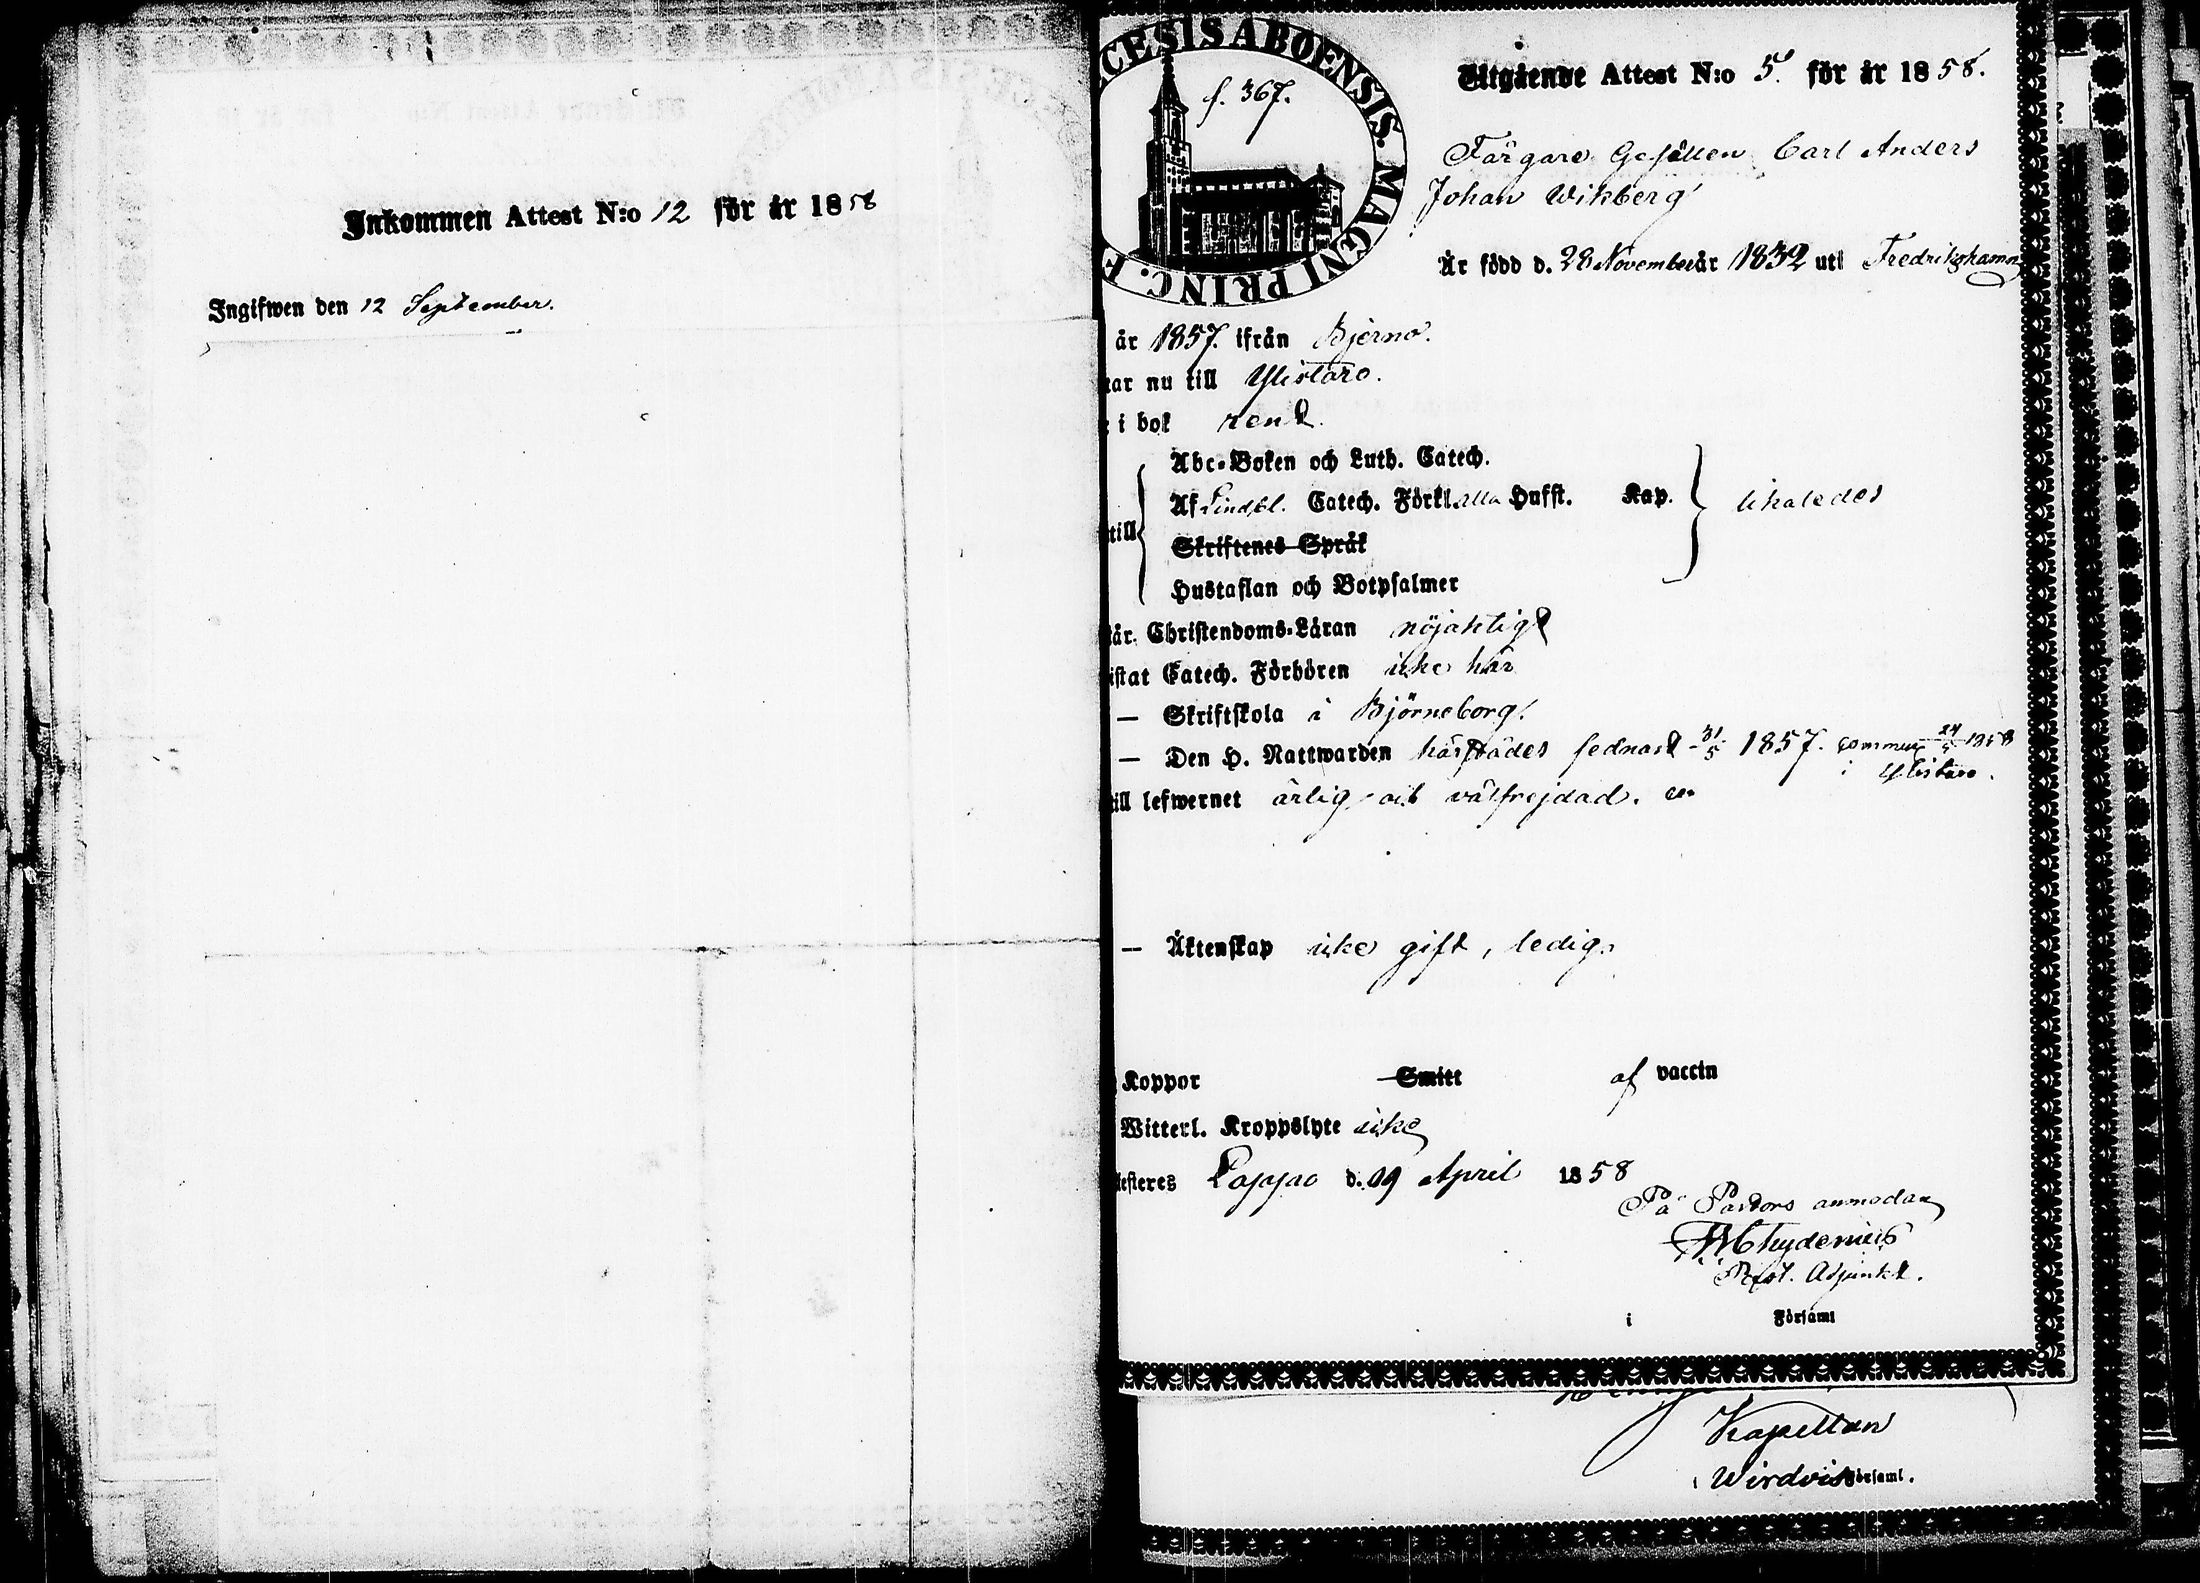 Inkommen Attest N:o 12 för år 1858
Ingifwen den 12 September.
CESIS ABOENSIS. MAGNI PRINC. F
f. 367.
Utgående Attest N:o 5. för år 1858.
Färgare Gesällen Carl Anders
Johan Wikberg
Är född d. 28 November år 1832 uti Fredrikshamn
år 1857. ifrån Bjerno.
tar nu till Ylistaro.
i bok rent.
Abc-Boken och Luth. Catech.
Af Lindbl. Catech. Förkl. alla Hufst. Kap. likaledes
till
Skriftenes Språk
Hustaflan och Botpsalmer
tår. Christendoms-Läran nöjaktigt
istat Catech. Förhören icke här
— Skriftskola i Björneborg.
— Den H. Nattwarden härstädes sednast 31/5 1857. commun 24/5 1858
i Ylistaro.
till lefwernet ärlig och välfrejdad.
— Äktenskap icke gift, ledig.
Koppor Smitt af vaccin
Witterl. Kroppslyte icke
testeres Loppo d. 19 April 1858
På Pastors anmodan
Chydenius
Past. Adjunkt.
i Församl
Kapellan
i Wirdois Församl.